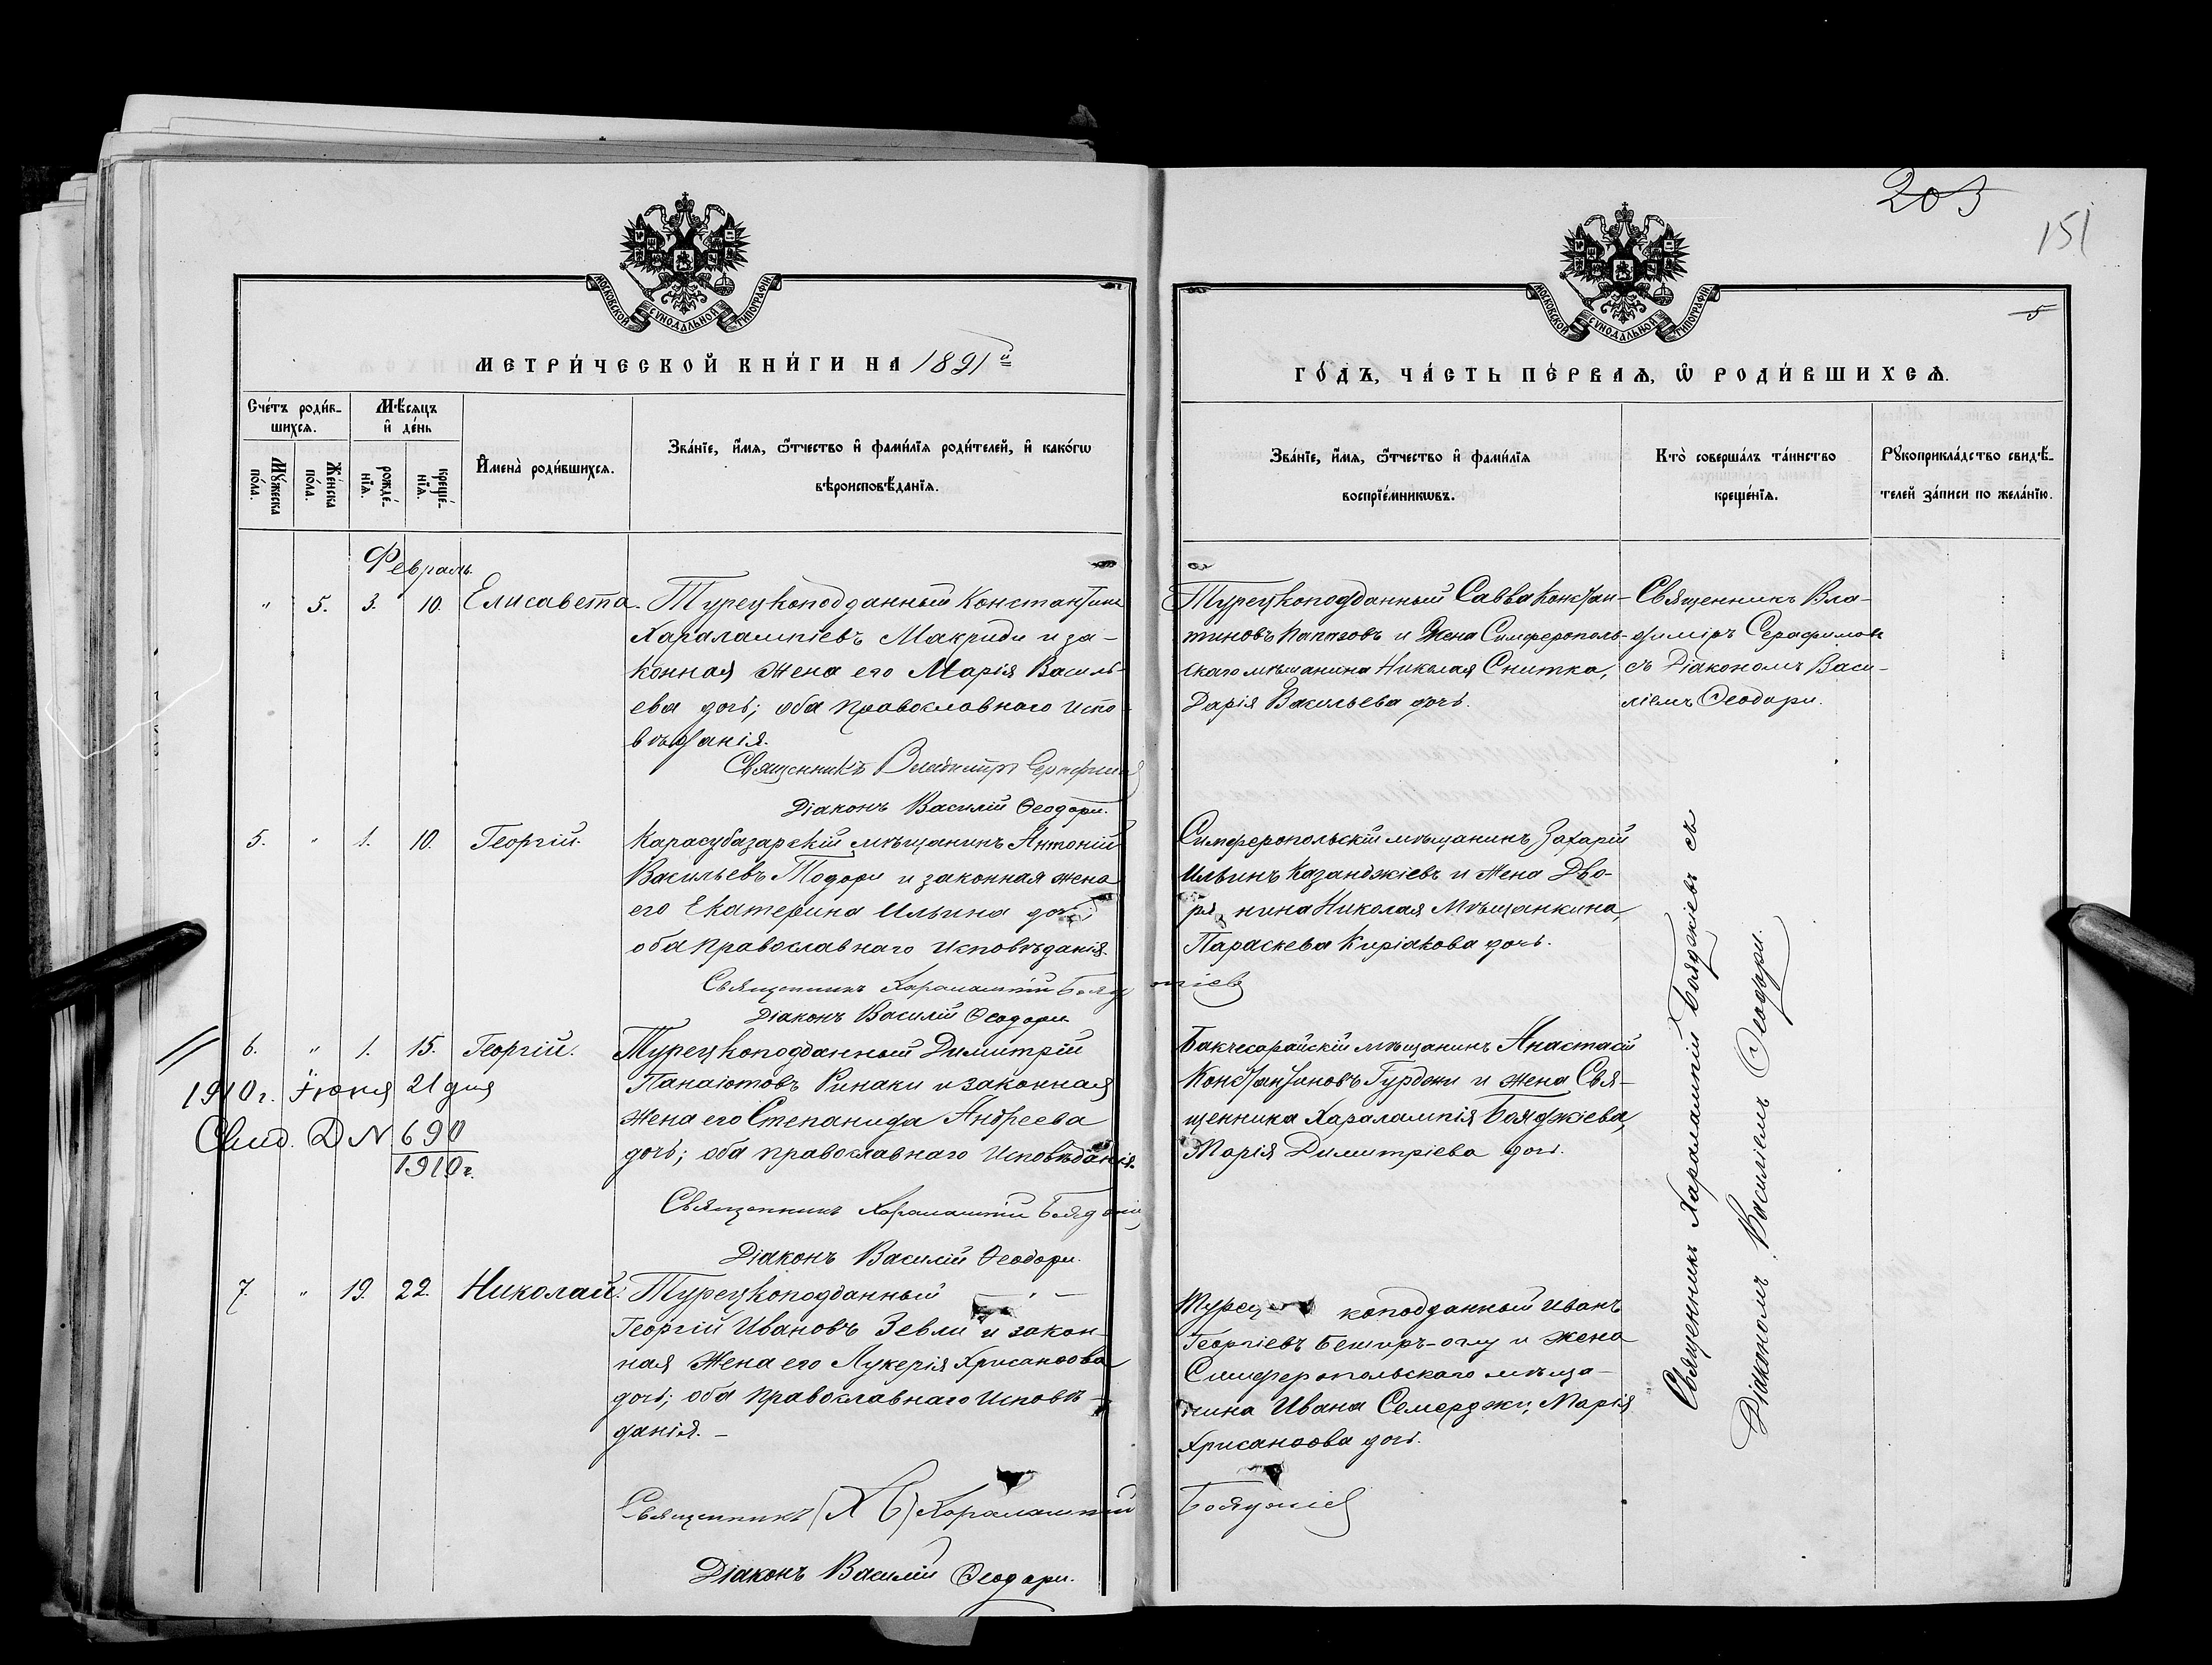 203
151
5
МОСКОВСКОЙ СѴНОДАЛЬНОЙ ТИПОГРАФІИ
МОСКОВСКОЙ СѴНОДАЛЬНОЙ ТИПОГРАФІИ
МЕТРИ́ЧЕСКОЙ КНИ́ГИ НА 1891й
ГО́ДЪ, ЧА́СТЬ ПЕ́РВАѦ, Ѡ҆ РОДИ́ВШИХСѦ.
Сче́тъ роди́в-
шихсѧ.
Мꙋ́жеска по́ла.
Же́нска по́ла.
Мѣ́сѧцъ
и҆ де́нь
рожде́-
нїѧ.
креще́-
нїѧ.
И҆мена̀ роди́вшихсѧ.
Зва́нїе, и҆́мѧ, ѻ҆́тчество и҆ фами́лїѧ роди́телей, и҆ како́гѡ
вѣроисповѣ́данїѧ.
Зва́нїе, и҆́мѧ, ѻ҆́тчество и҆ фами́лїѧ
воспрїе́мникѡвъ.
Кто̀ соверша́лъ та́инство
креще́нїѧ.
Рꙋкоприкла́дство свидѣ́-
телей за́писи по жела́нїю.
Февраль.
" 5. 3. 10. Елисавета.
Турецкоподданный Константинъ
Харалампіевъ Макриди и за-
конная жена его Марія Василь-
ева дочь; оба православнаго испо-
вѣданія.
Священникъ Владиміръ Серафимов
Діаконъ Василій Ѳеодори.
Турецкоподданный Савва Констан-
тиновъ Папазовъ и жена Симферополь-
скаго мѣщанина Николая Снитка,
Дарія Васильева дочь.
Священникъ Вла-
диміръ Серафимовъ
съ Діакономъ Васи-
ліемъ Ѳеодори.
5. " 1. 10. Георгій.
Карасубазарскій мѣщанинъ Антоній
Васильевъ Тодори и законная жена
его Екатерина Ильина дочь;
оба православнаго исповѣданія.
Священникъ Харалампій Бояджіев
Діаконъ Василій Ѳеодори
Симферопольскій мѣщанинъ Захарій
Ильинъ Казанджіевъ и жена Дво-
рянина Николая Мѣщанкина,
Параскева Киріакова дочь.
6. " 1. 15. Георгій.
1910 г. Іюня 21 дня
Свид. D N 690
1910 г.
Турецкоподданный Димитрій
Панаіотовъ Ринаки и законная
жена его Степанида Андреева
дочь; оба православнаго исповѣданія.
Священникъ Харалампій Бояджи
Діаконъ Василій Ѳеодори.
Бакчесарайскій мѣщанинъ Анастасій
Константиновъ Гурджи и жена Свя-
щенника Харалампія Бояджіева,
Марія Димитріева дочь.
7. " 19. 22. Николай.
Турецкоподданный
Георгій Ивановъ Зевли и закон-
ная жена его Лукерія Хрисанѳова
дочь; оба православнаго исповѣ-
данія. –
Священникъ (Х Б) Харалампій Бояджіев
Діаконъ Василій Ѳеодори.
Турецкоподданный Иванъ
Георгіевъ Бекиръ-оглу и жена
Симферопольскаго мѣща-
нина Ивана Семерджи, Марія
Хрисанѳова дочь.
Священникъ Харалампій Бояджіевъ съ
Діакономъ Василіемъ Ѳеодори.